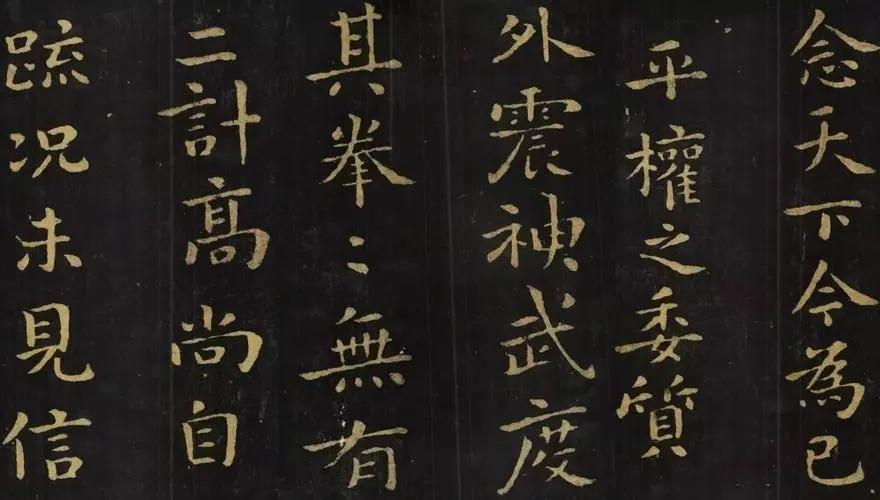 念天下今為已
平權之委質
外震神武度
其拳〻無有
二計高尚自
疏況未見信